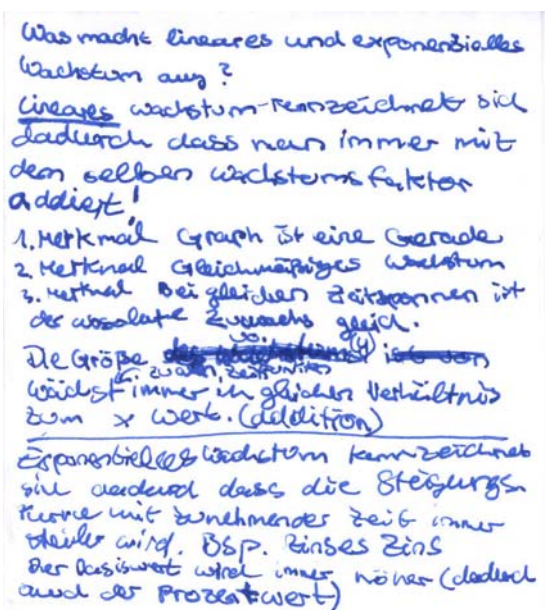 Was macht lineares und exponensielles
Wachstum aus?
Lineares wachstum kennzeichnet sich
dadurch dass man immer mit
dem selben wachstumsfaktor
addiert!
1. Merkmal Graph ist eine Gerade
2. Merkmal Gleichmäßiges wachstum
3. Merkmal Bei gleichen Zeitspannen ist
der absolute Zuwachs gleich.
Die Größe (y)
zu allen Zeitpunkten
wächst immer in gleichen Verhältnis
zum x wert. (addition)
Exponentielles Wachstum kennzeichnet
sich dadurch dass die Steigungs
kurve mit zunehmender Zeit immer
steiler wird. Bsp. Zinses Zins
Der Basiswert wird immer höher (dadurch
auch der Prozentwert)